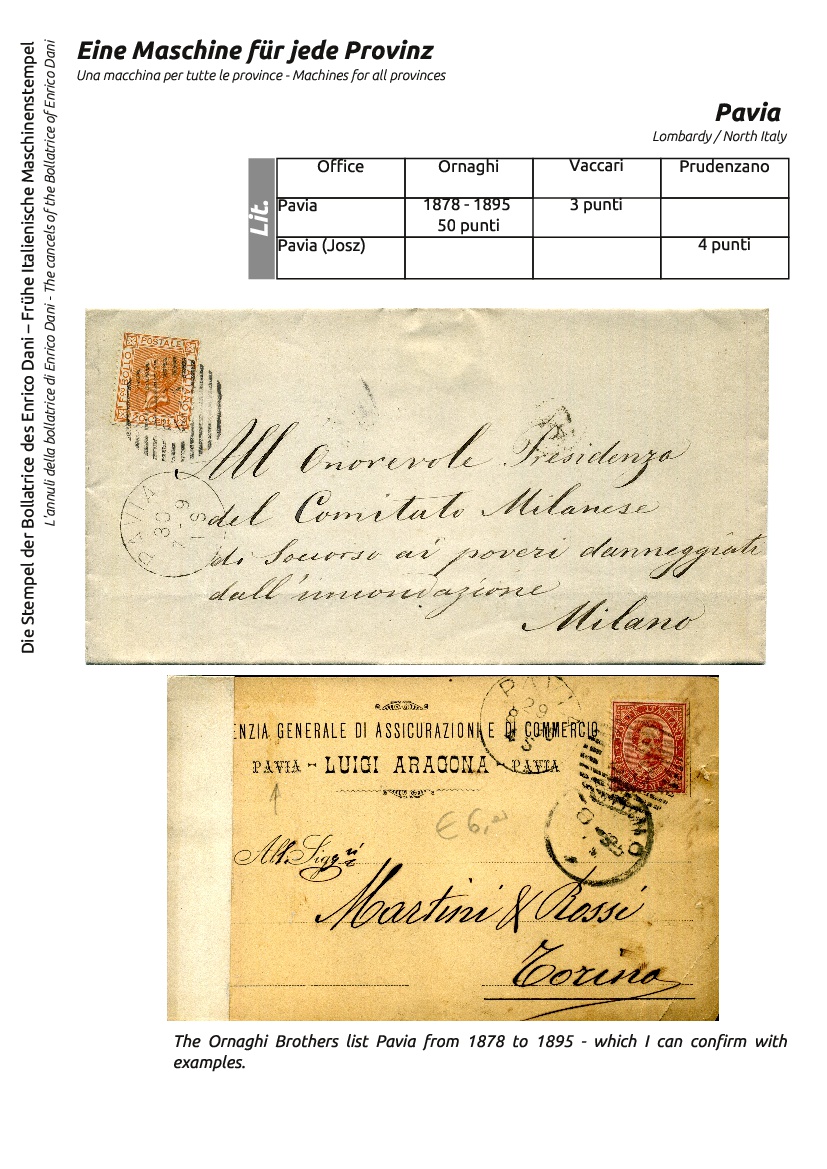 Die Stempel der Bollatrice des Enrico Dani – Frühe Italienische Maschinenstempel
L'annuli della bollatrice di Enrico Dani - The cancels of the Bollatrice of Enrico Dani
Eine Maschine für jede Provinz
Una macchina per tutte le province - Machines for all provinces
Pavia
Lombardy / North Italy
Lit.
Office Ornaghi Vaccari Prudenzano
Pavia 1878 - 1895 3 punti
50 punti
Pavia (Josz) 4 punti
POSTALE
BOLLO
PAVIA
30
9
All Onorevole Presidenza
del Comitato Milanese
di Soccorso ai poveri danneggiati
dall'innondazione
Milano
PAVIA
29
ENZIA GENERALE DI ASSICURAZIONI E DI COMMERCIO
PAVIA - LUIGI ARAGONA - PAVIA
€ 6,
All. Sigg.ri
Martini & Rossi
Torino
The Ornaghi Brothers list Pavia from 1878 to 1895 - which I can confirm with
examples.